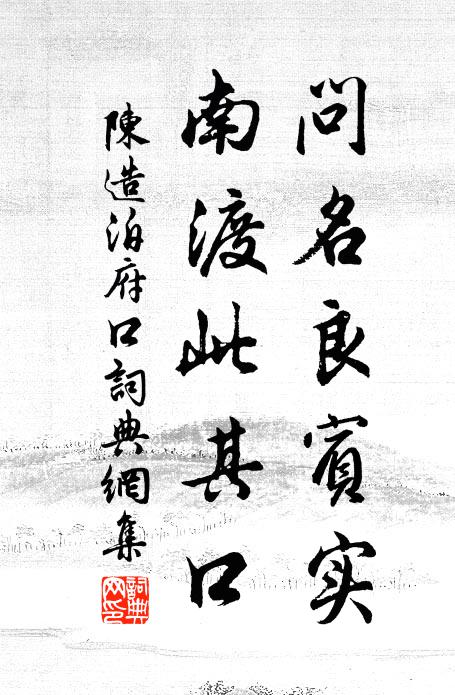 问名良賓实
南渡此其口
陳造泊府口詞典網集
詞典网印